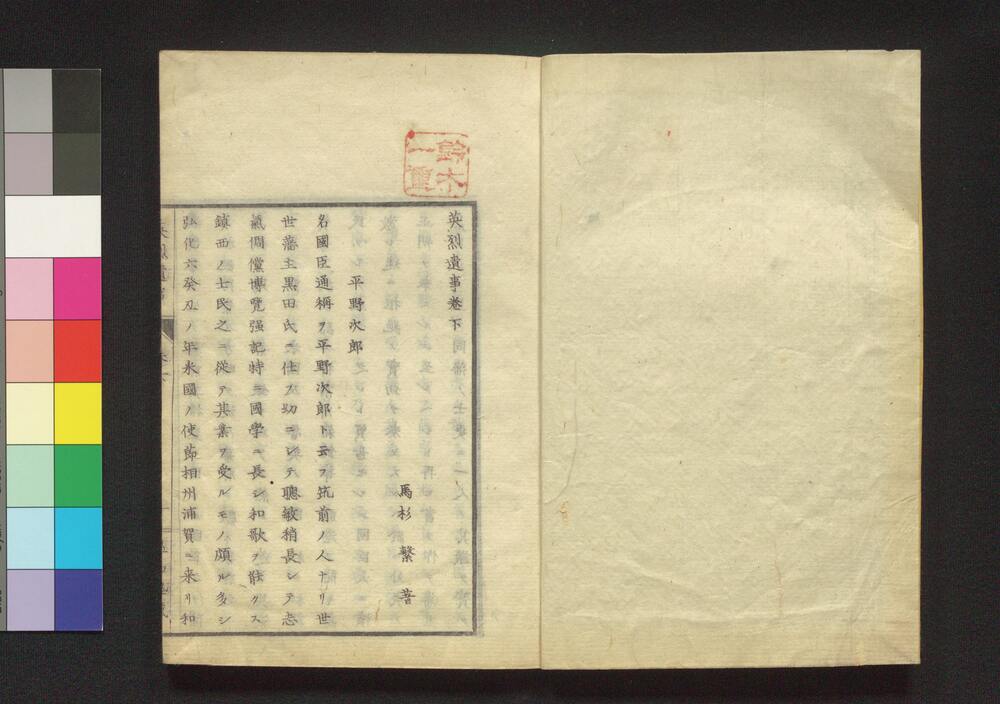 英烈遺事卷下
馬杉 繫 著
平野次郎
名國臣通稱ヲ平野次郎ト云フ筑前ノ人ナリ世
世藩主黒田氏ニ仕フ幼ニシテ聰敏稍長シテ志
氣倜儻博覽强記特ニ國學ニ長シ和歌ヲ能クス
鎮西ノ士民之ニ從テ其業ヲ受ルモノ頗ル多シ
弘化六癸丑ノ年米國ノ使節相州浦賀ニ来リ和
鈴木
一